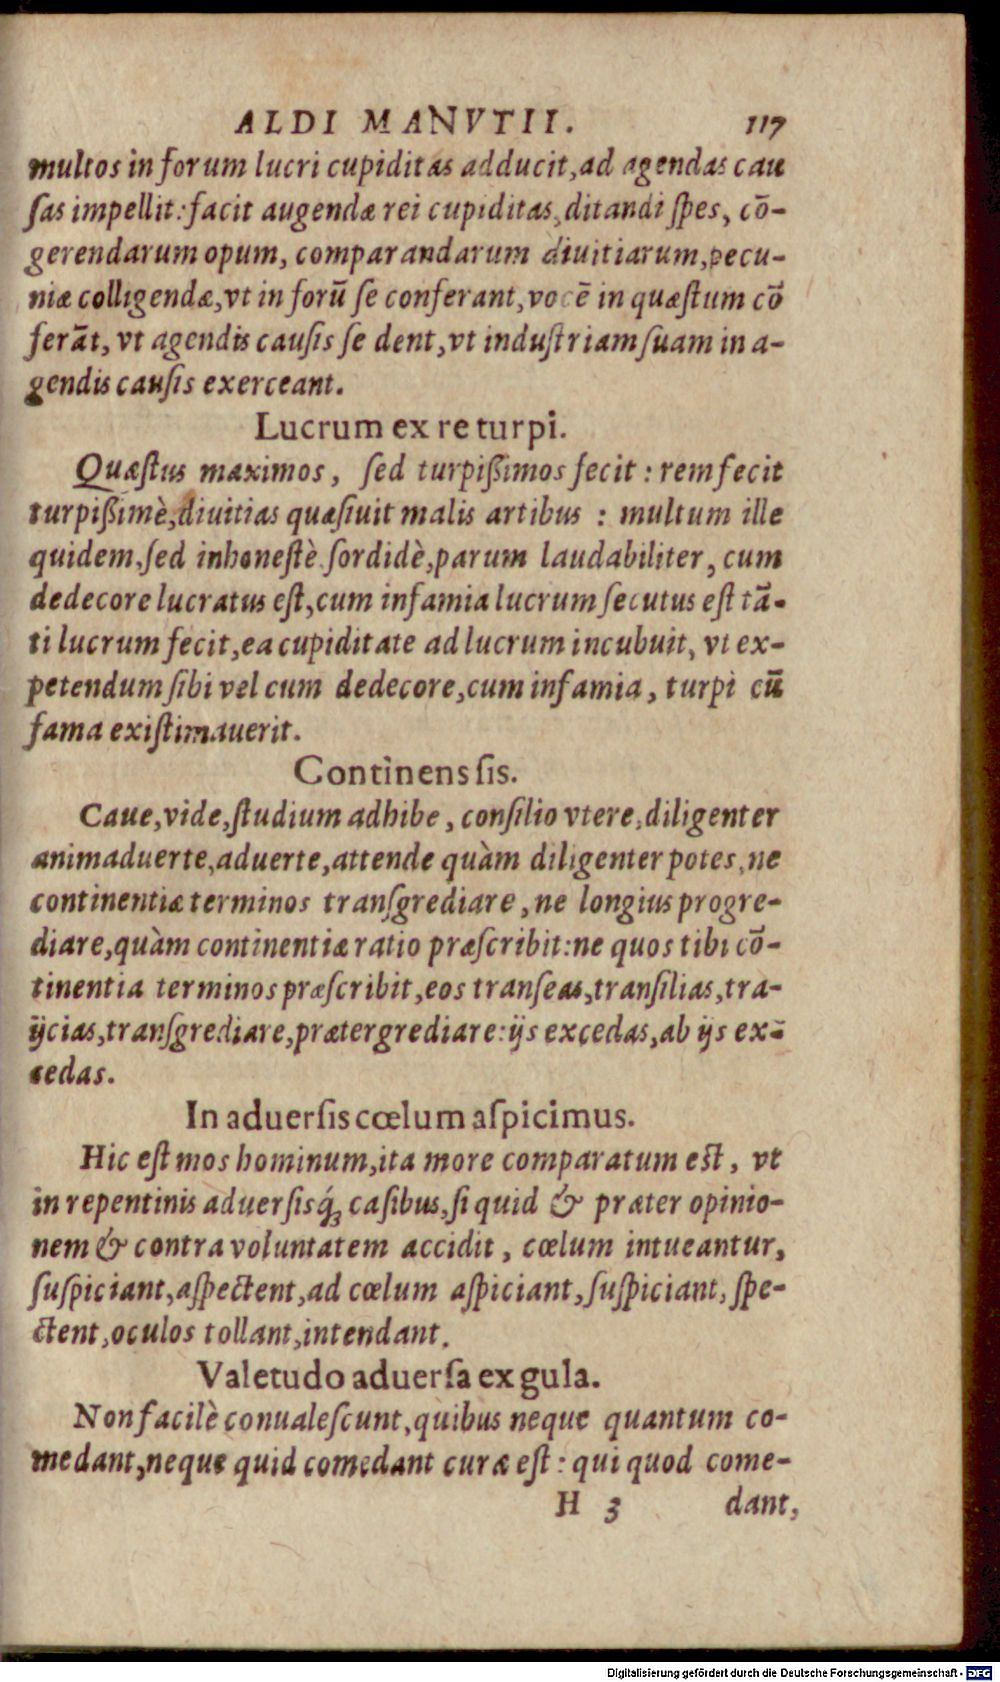 ALDI MANVTII. 117
multos in forum lucri cupiditas adducit, ad agendas cau
ſas impellit: facit augendæ rei cupiditas, ditandi ſpes, cō-
gerendarum opum, comparandarum diuitiarum, pecu-
niæ colligendæ, vt in forū ſe conferant, vocē in quæſtum cō
ferāt, vt agendis cauſis ſe dent, vt induſtriam ſuam in a-
gendis cauſis exerceant.
Lucrum ex re turpi.
Quæſtus maximos, ſed turpißimos fecit: rem fecit
turpißimè, diuitias quæſiuit malis artibus: multum ille
quidem, ſed inhoneſtè ſordidè, parum laudabiliter, cum
dedecore lucratus eſt, cum infamia lucrum ſecutus eſt tā-
ti lucrum fecit, ea cupiditate ad lucrum incubuit, vt ex-
petendum ſibi vel cum dedecore, cum infamia, turpi cū
fama exiſtimauerit.
Continens ſis.
Caue, vide, ſtudium adhibe, conſilio vtere, diligenter
animaduerte, aduerte, attende quàm diligenter potes, ne
continentiæ terminos tranſgrediare, ne longius progre-
diare, quàm continentiæ ratio præſcribit: ne quos tibi cō-
tinentia terminos præſcribit, eos tranſeas, tranſilias, tra-
ijcias, tranſgrediare, prætergrediare: ijs excedas, ab ijs ex-
cedas.
In aduerſis cœlum aſpicimus.
Hic eſt mos hominum, ita more comparatum eſt, vt
in repentinis aduerſisq́; caſibus, ſi quid & præter opinio-
nem & contra voluntatem accidit, cœlum intueantur,
ſuſpiciant, aſpectent, ad cœlum aſpiciant, ſuſpiciant, ſpe-
ctent, oculos tollant, intendant.
Valetudo aduerſa ex gula.
Non facilè conualeſcunt, quibus neque quantum co-
medant, neque quid comedant curæ eſt: qui quod come-
H 3 dant,
Digitalisierung gefördert durch die Deutsche Forschungsgemeinschaft - DFG